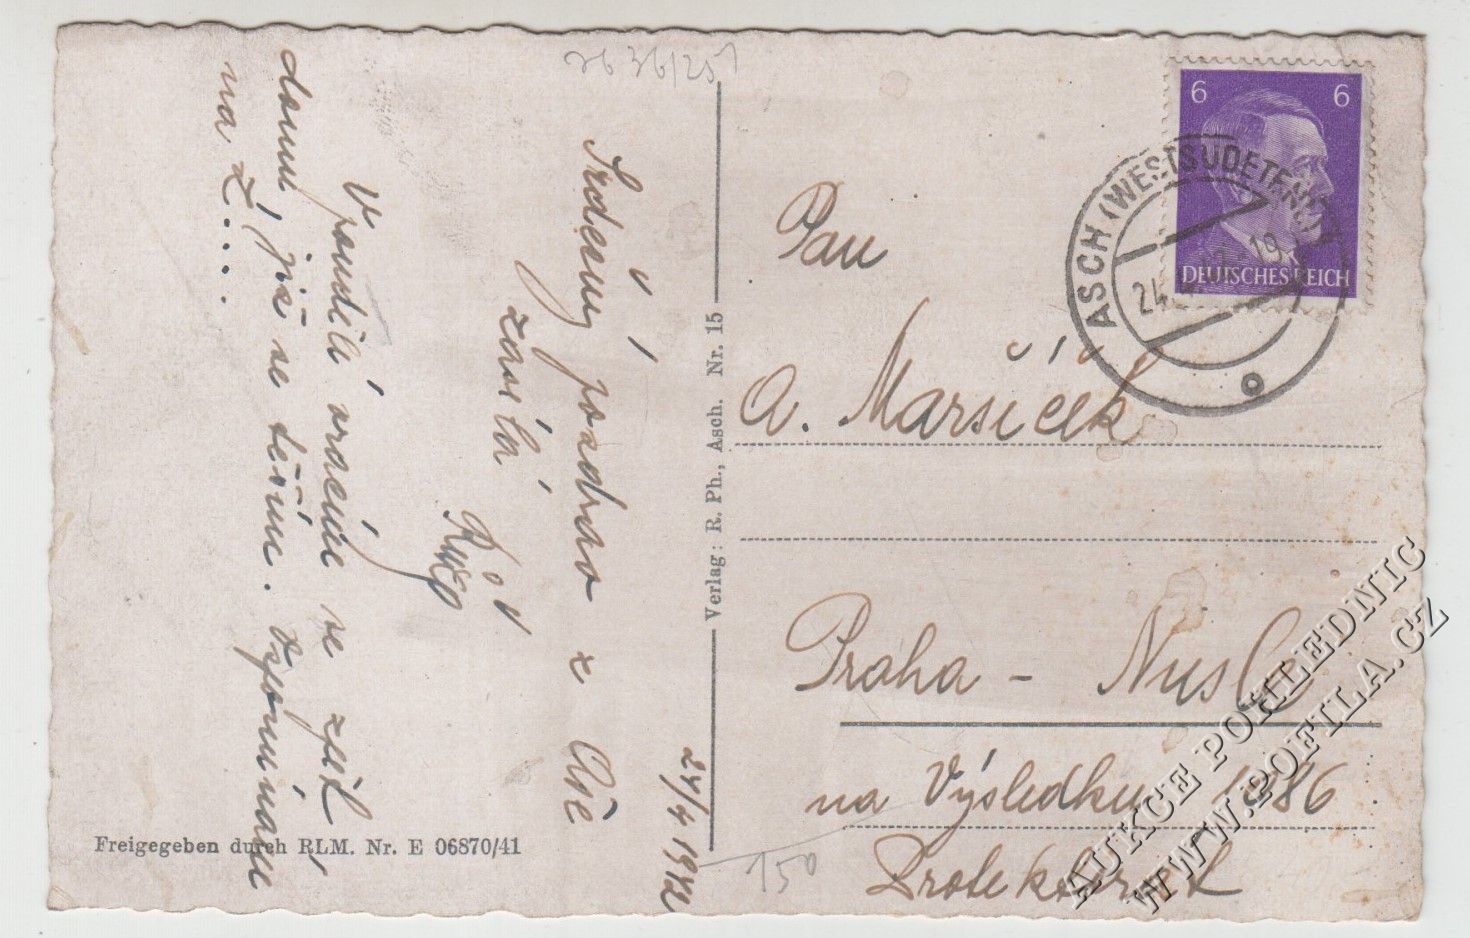 2636/251
24/4 1942
Srdečný pozdrav z Aše
zasílá
Růža
V pondělí vracím se zpět
domů, již se těším. Vzpomínám
na Z....
Verlag: R. Ph., Asch. Nr. 15
Freigegeben durch RLM. Nr. E 06870/41
6 6
DEUTSCHES REICH
ASCH (WESTSUDETENL)
24. 19
Pan
A. Maršíček
Praha - Nusle
na Výsledku 1086
Protektorát
150
AUKCE POHLEDNIC
WWW.POFILA.CZ